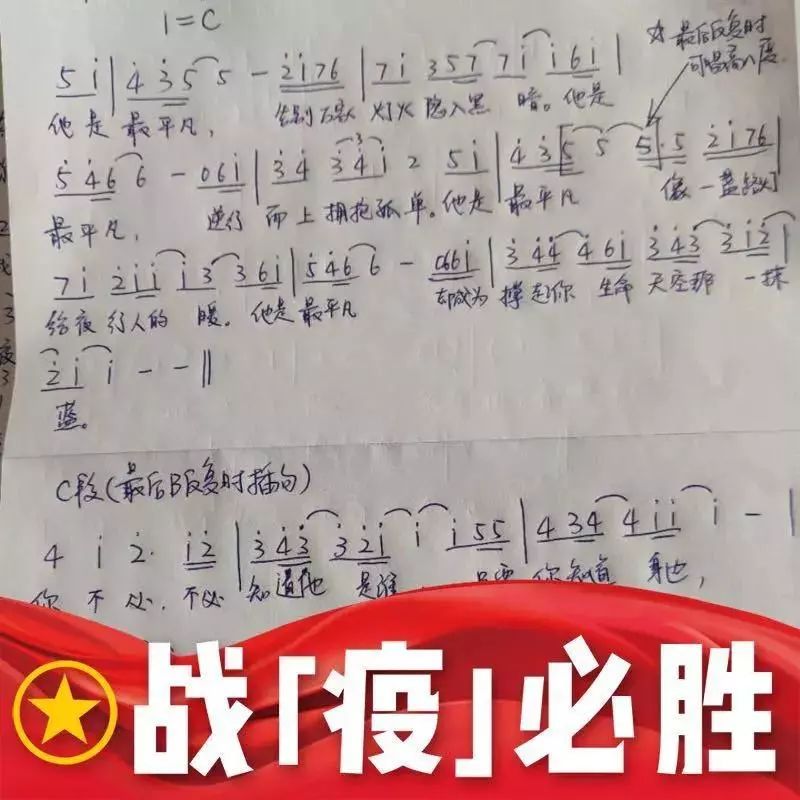 1=C
5 i | 4 3 5 5 - 2 i 7 6 | 7 i 3 5 7 7 i i 6 i |
☆最后反复时
可唱高八度
他是最平凡, 告别万家灯火隐入黑暗。他是
5 4 6 6 - 0 6 i | 3 4 3 4 i 2 5 i | 4 3 [5 5 5]·5 2 i 7 6 |
最平凡, 逆行而上拥抱孤单。他是最平凡 像一盏路灯
7 i 2 i i i 3 3 6 i | 5 4 6 6 - 0 6 6 i | 3 4 4 4 6 i 3 4 3 3 i 2 |
给夜行人的暖。他是最平凡 却成为撑起你生命天空那一抹
2 i i - - ‖
蓝。
C段(最后B反复时插句)
4 i 2· i 2 | 3 4 3 3 2 i i i 5 5 | 4 3 4 4 i i i - |
你不必,不必知道他是谁 只要你知道
战「疫」必胜